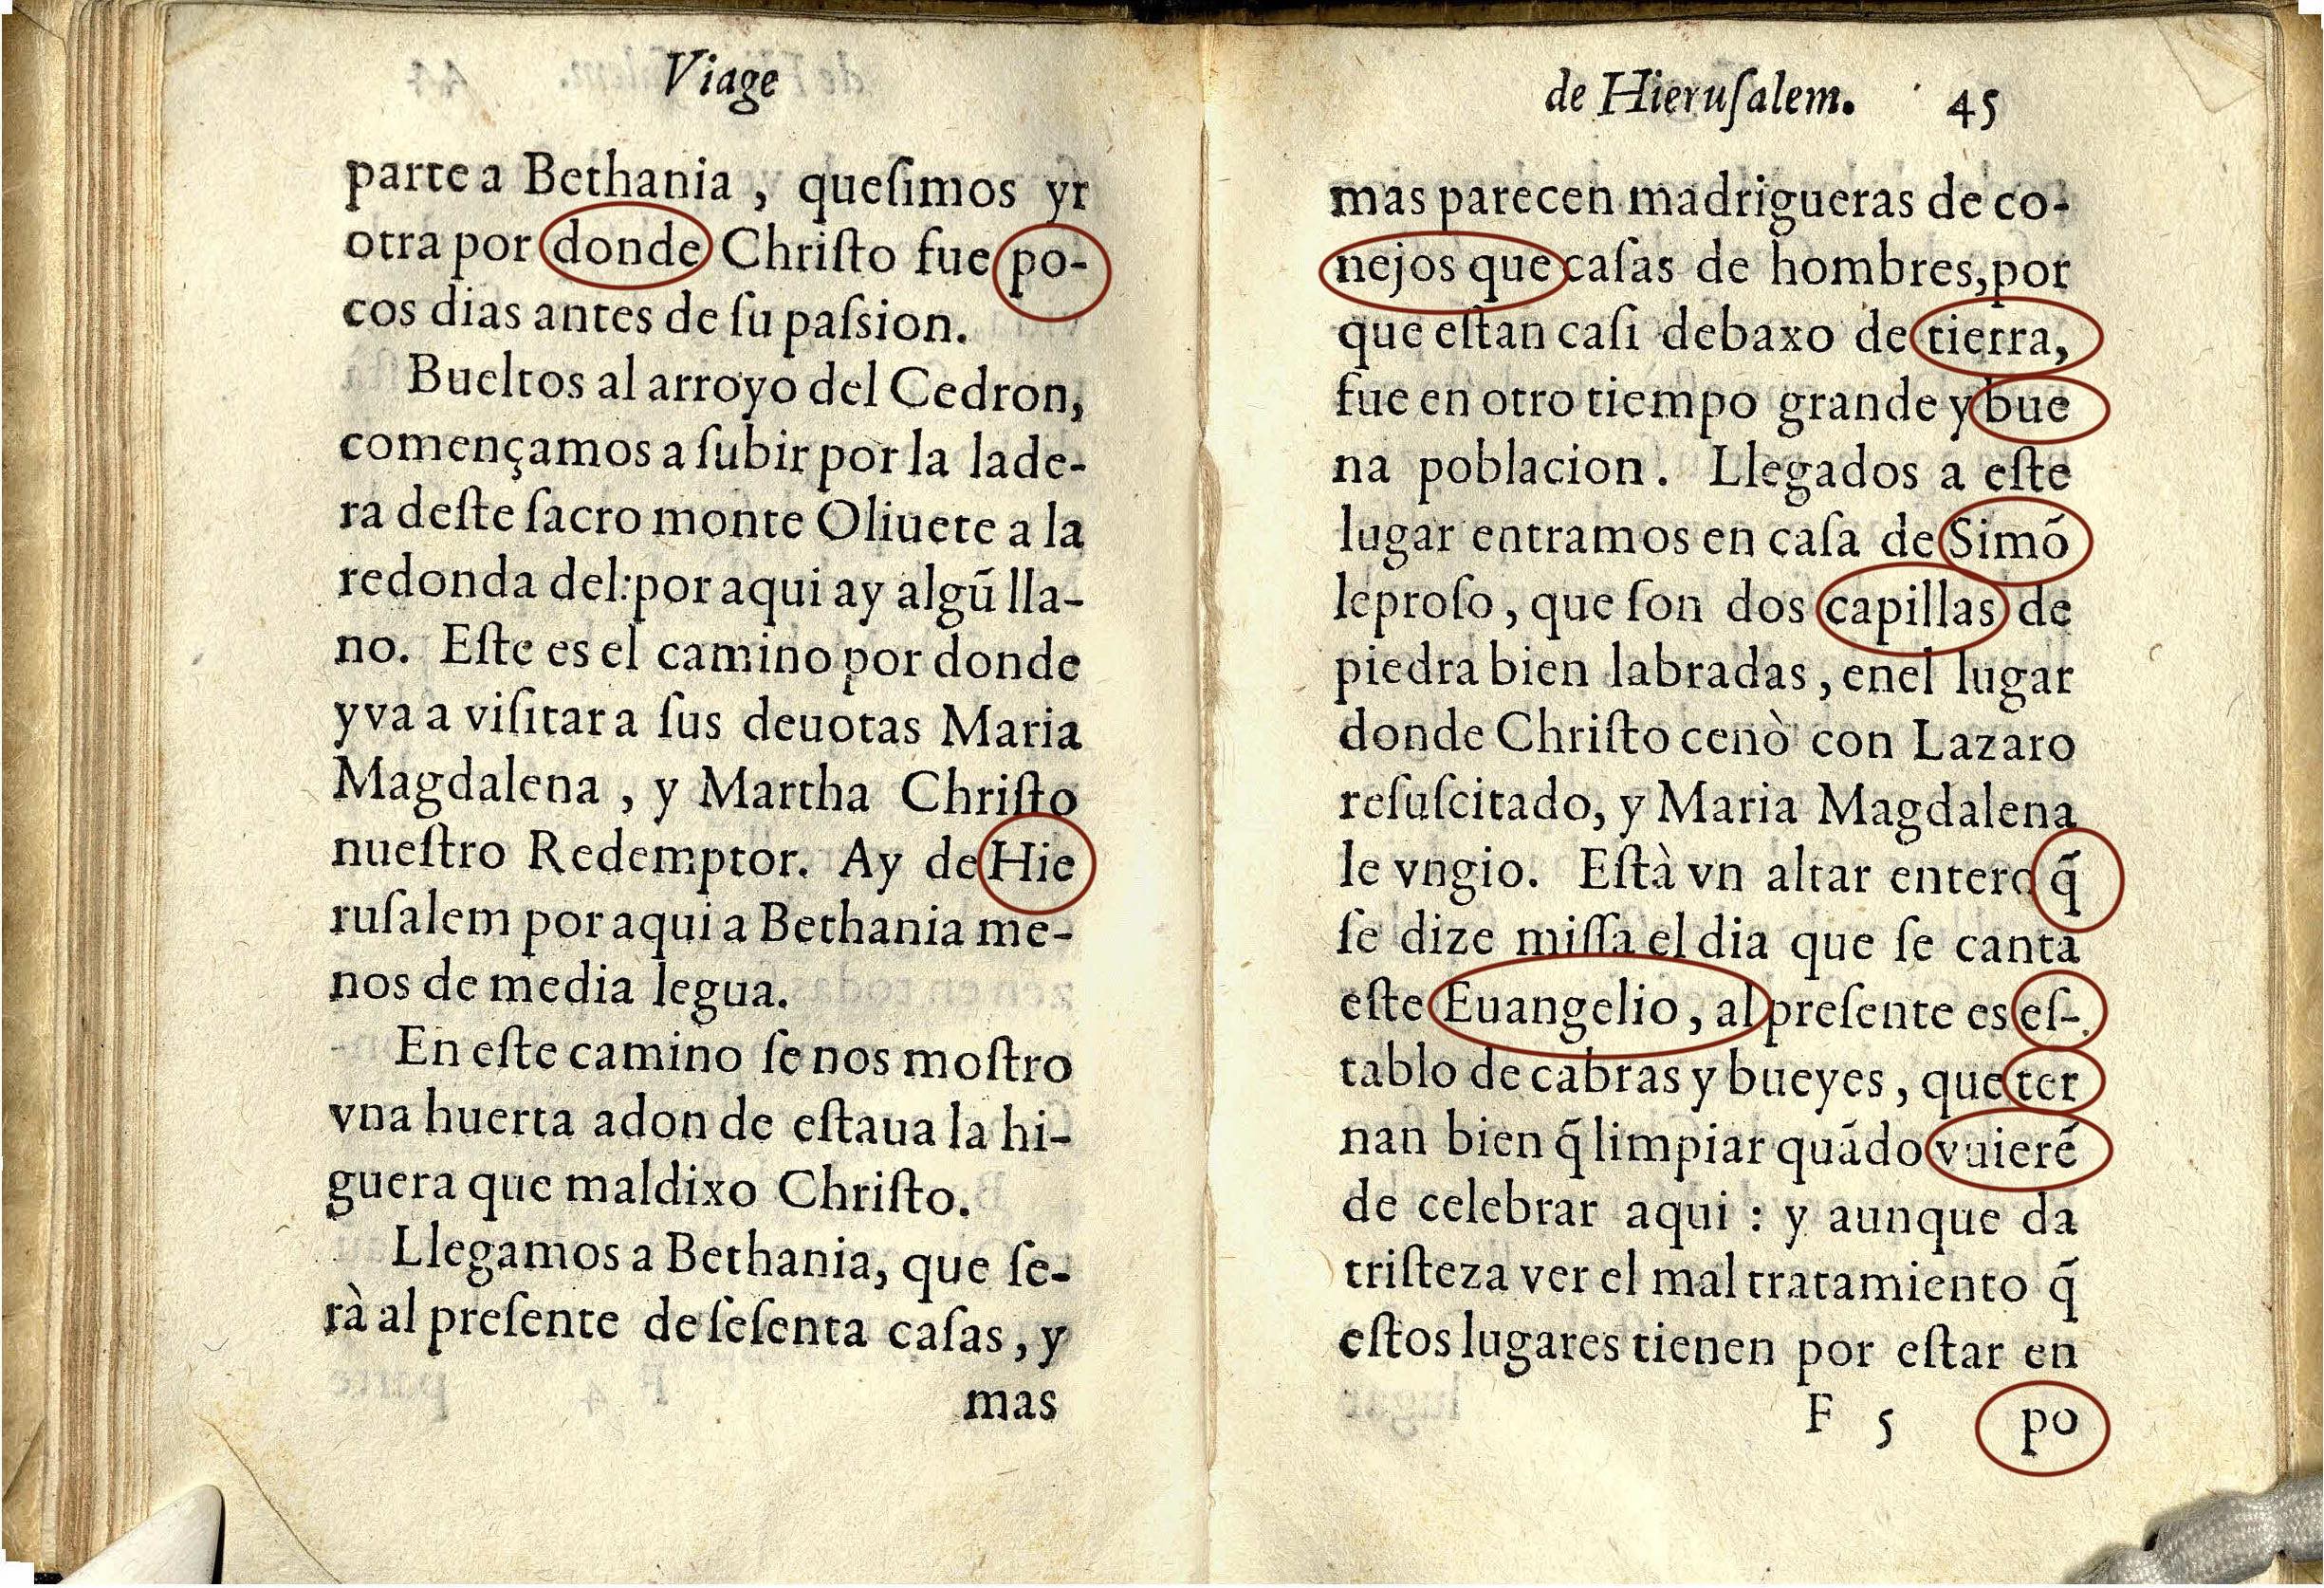 Viage
parte a Bethania , queſimos yr
otra por donde Chriſto fue po-
cos dias antes de ſu paſsion.
Bueltos al arroyo del Cedron,
començamos a ſubir por la lade-
ra deſte ſacro monte Oliuete a la
redonda del: por aqui ay algũ lla-
no. Eſte es el camino por donde
yva a viſitar a ſus deuotas Maria
Magdalena , y Martha Chriſto
nueſtro Redemptor. Ay de Hie
ruſalem por aqui a Bethania me-
nos de media legua.
En eſte camino ſe nos moſtro
vna huerta adonde eſtaua la hi-
guera que maldixo Chriſto.
Llegamos a Bethania, que ſe-
rà al preſente de ſeſenta caſas , y
mas
de Hieruſalem. 45
mas parecen madrigueras de co-
nejos que caſas de hombres, por
que eſtan caſi debaxo de tierra,
fue en otro tiempo grande y bue
na poblacion. Llegados a eſte
lugar entramos en caſa de Simõ
leproſo , que ſon dos capillas de
piedra bien labradas , enel lugar
donde Chriſto cenò con Lazaro
reſuſcitado, y Maria Magdalena
le vngio. Eſtà vn altar entero q̃
ſe dize miſſa el dia que ſe canta
eſte Euangelio , al preſente es eſ-
tablo de cabras y bueyes , que ter
nan bien q̃ limpiar quãdo vuierẽ
de celebrar aqui : y aunque da
triſteza ver el mal tratamiento q̃
eſtos lugares tienen por eſtar en
F 5 po